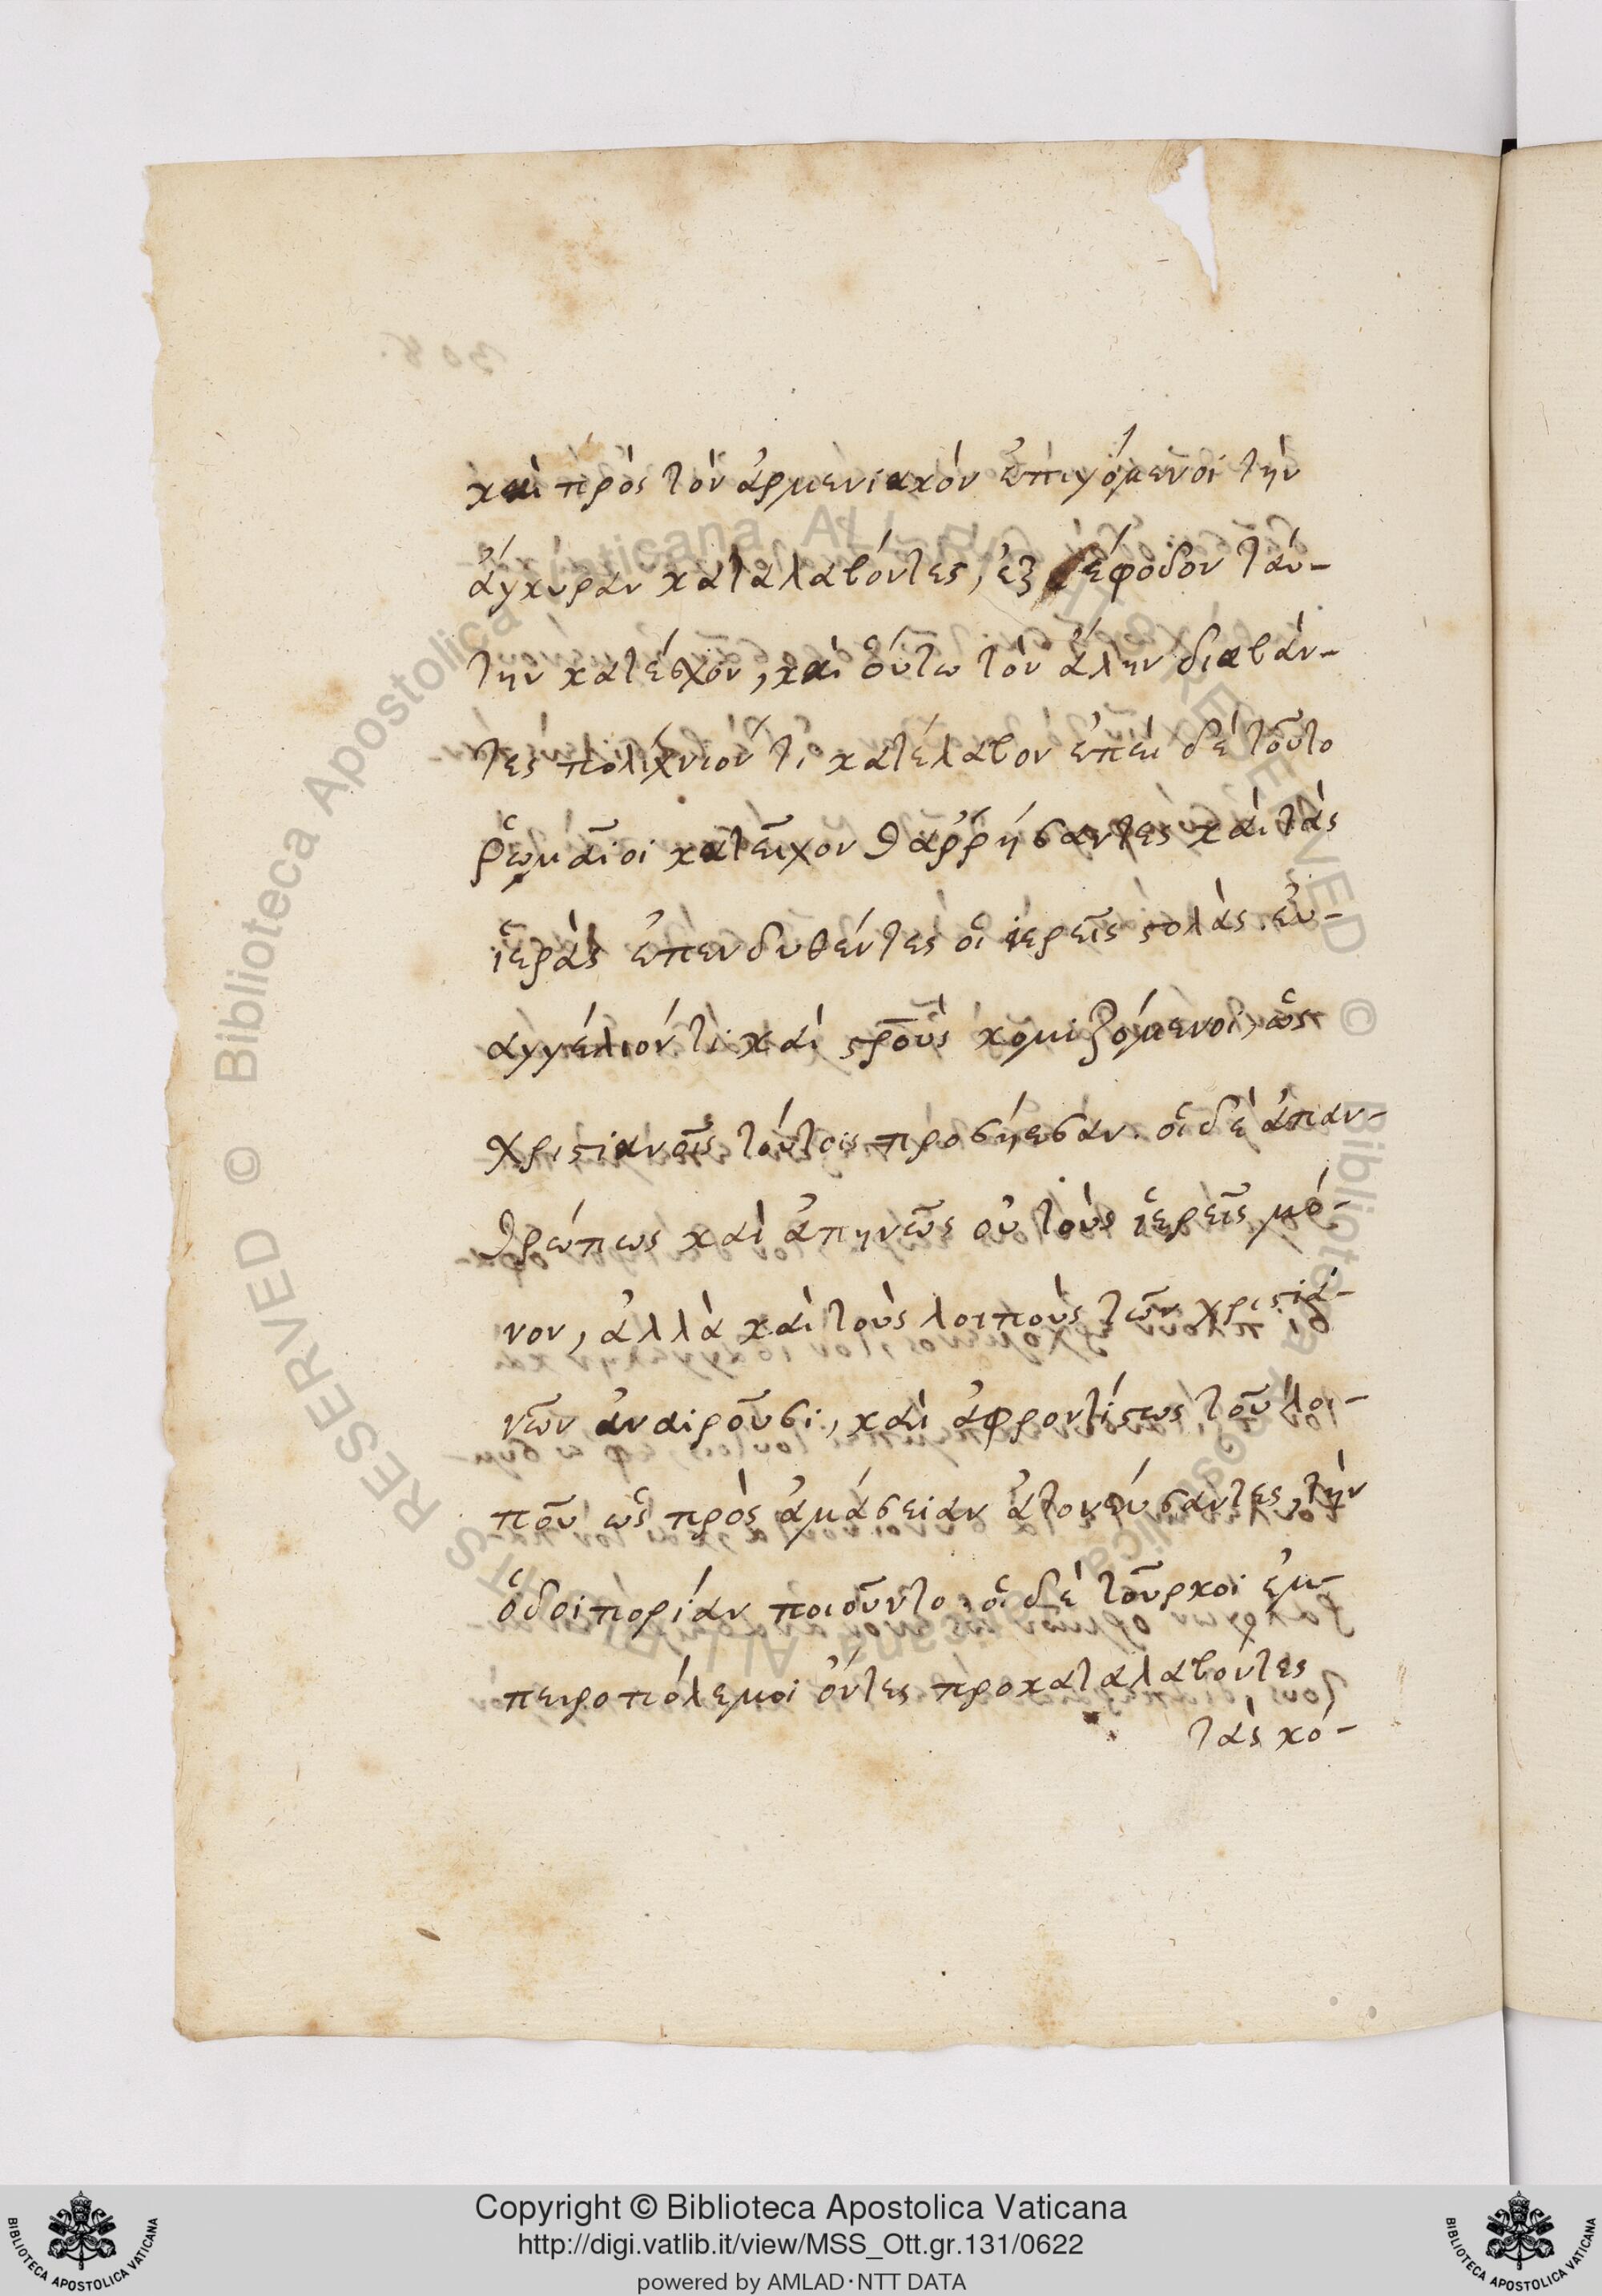 καὶ πρὸς τὸν ἀρμενιακὸν ἐπιγόμενοι τὴν
ἄγκυραν καταλαβόντες, ἐξ ἐφόδου ταύ-
την κατέσχον, καὶ οὕτω τὸν ἅλην διαβάν-
τες πολίχνιόν τι κατέλαβον ἐπεὶ δὲ τοῦτο
ῥωμαῖοι κατεῖχον θαρρήσαντες καὶ τὰς
ἱερὰς ἐπενδυθέντες οἱ ἱερεῖς στολὰς εὐ-
αγγέλιόν τι καὶ στροὺς κομιζόμενοι, ὡς
χριστιανοῖς τούτοις προσήεσαν. οἱ δὲ ἀπαν-
θρώπως καὶ ἀπηνῶς οὐ τοὺς ἱερεῖς μό-
νον, ἀλλὰ καὶ τοὺς λοιποὺς τῶν χριστια-
νῶν ἀναιροῦσι, καὶ ἀφροντίστως τοῦ λοι-
ποῦ ὡς πρὸς ἀμάσειαν ἀπονεύσαντες, τὴν
ὁδοιπορίαν ποιοῦντο. οἱ δὲ τοῦρκοι ἐμ-
πειροπόλεμοι ὄντες προκαταλαβόντες
τὰς κό-
Copyright © Biblioteca Apostolica Vaticana
http://digi.vatlib.it/view/MSS_Ott.gr.131/0622
powered by AMLAD·NTT DATA
BIBLIOTECA APOSTOLICA VATICANA
BIBLIOTECA APOSTOLICA VATICANA